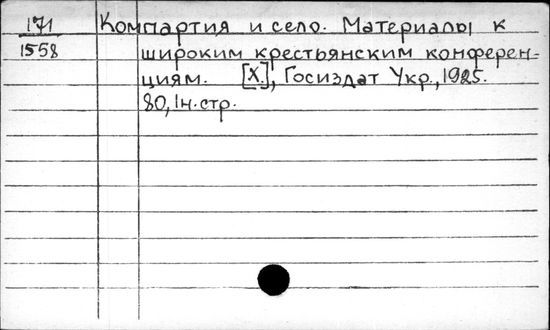 171 Компартия и село. Материалы к
1558 широким крестьянским конферен-
циям. [Х.], Госиздат Укр., 1925.
80, 1н.стр.